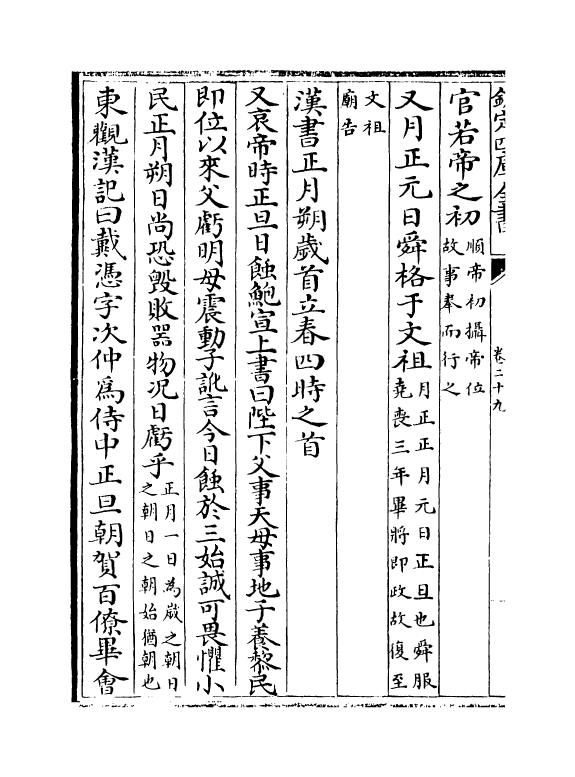 欽定四庫全書
卷二十九
官若帝之初順帝初攝帝位故事奉而行之
又月正元日舜格于文祖月正正月元日正旦也舜服堯喪三年畢將即政故復至
文祖廟告
漢書正月朔歲首立春四時之首
又哀帝時正旦日蝕鮑宣上書曰陛下父事天母事地子養黎民
即位以來父虧明母震動子訛言今日蝕於三始誠可畏懼小
民正月朔日尚恐毀敗器物况日虧乎正月一日為歲之朝日之朝日之朝始猶朝也
東觀漢記曰戴憑字次仲為侍中正旦朝賀百僚畢會